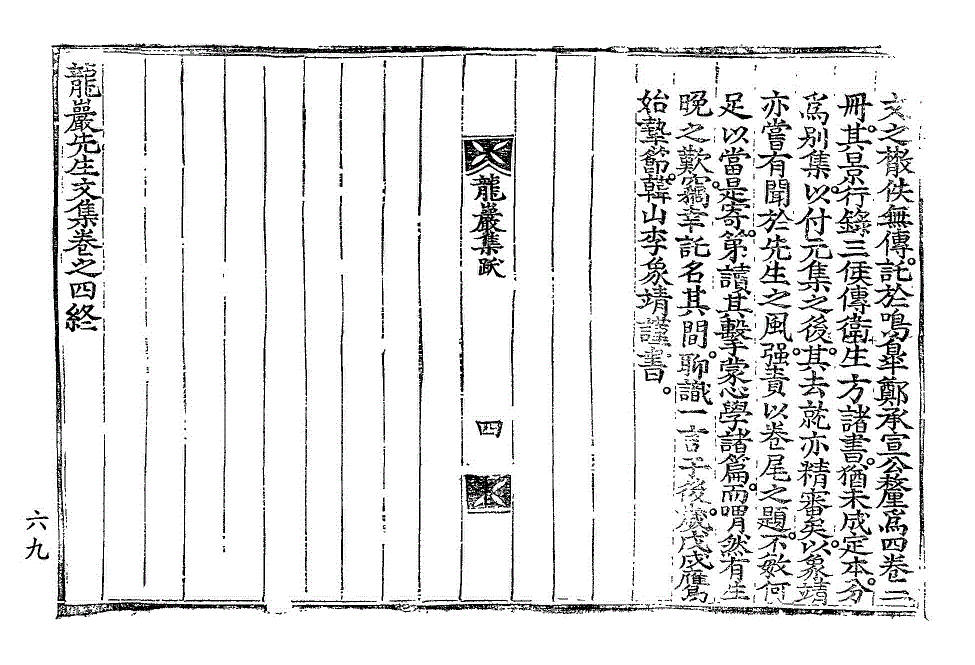 文之散佚無傳。託於鳴皐鄭承宣公釐爲四卷二
冊。其景行錄三侯傳衛生方諸書。猶未成定本。分
爲別集。以付元集之後。其去就亦精審矣。以象靖
亦嘗有聞於先生之風。强責以卷尾之題。不敏何
足以當是寄。第讀其擊蒙心學諸篇。而喟然有生
晚之歎。竊幸託名其間。聊識一言于後。歲戊戌鷹
始摯節。韓山李象靖謹書。
龍巖集跋
四
龍巖先生文集卷之四終
六九